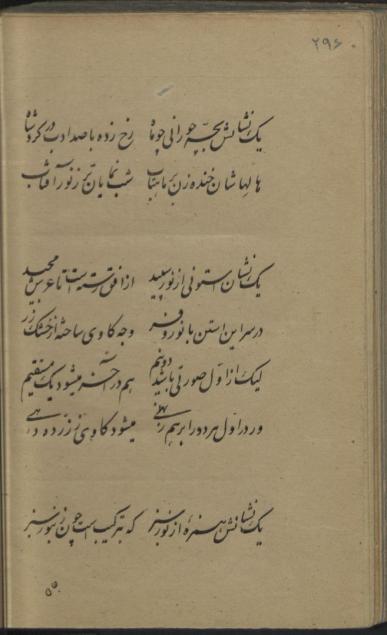 ۲۹۶
یک نشانش بچه حورانی چو ماه رخ زده با صد ادب در کرد شاه
هالهاشان خنده زن بر ماهتاب شب نمایان تر ز نور آفتاب
یک نشان استونی از نور سپید از افق رسته است تا عرش مجید
در سر این استن با نور و فر وجه کاوی ساخته از خشک زر
لیک از اول صورتی باشد دو نیم هم در آخر میشود یک مستقیم
ور در اول هر دو را بر هم نهی میشود کاوی ز زر ده دهی
یک نشانش سفره از نور سبز که بترکیب است چون زنبور سبز